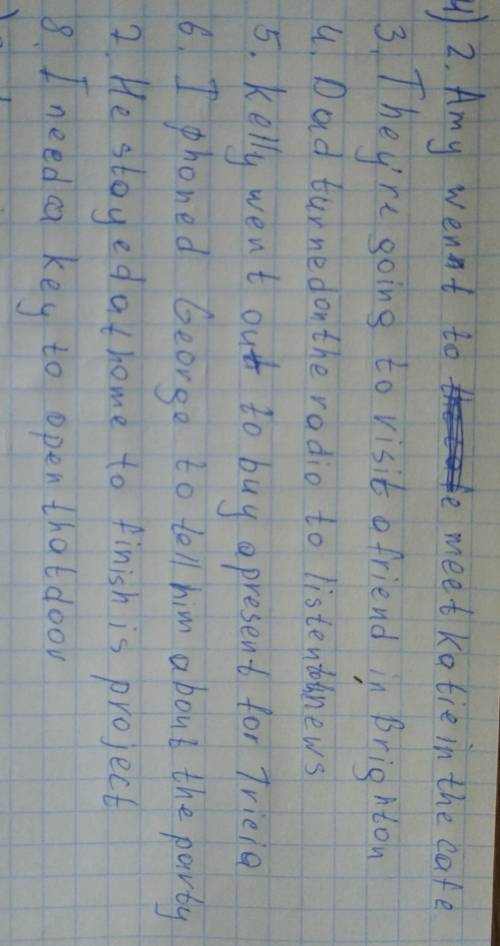 4) 2. Amy went to meet Katie in the cafe
3. They're going to visit a friend in Brighton
4. Dad turned on the radio to listen news
5. Kelly went out to buy a present for Tricia
6. I phoned George to tell him about the party
7. He stayed at home to finish is project
8. I need a key to open that door